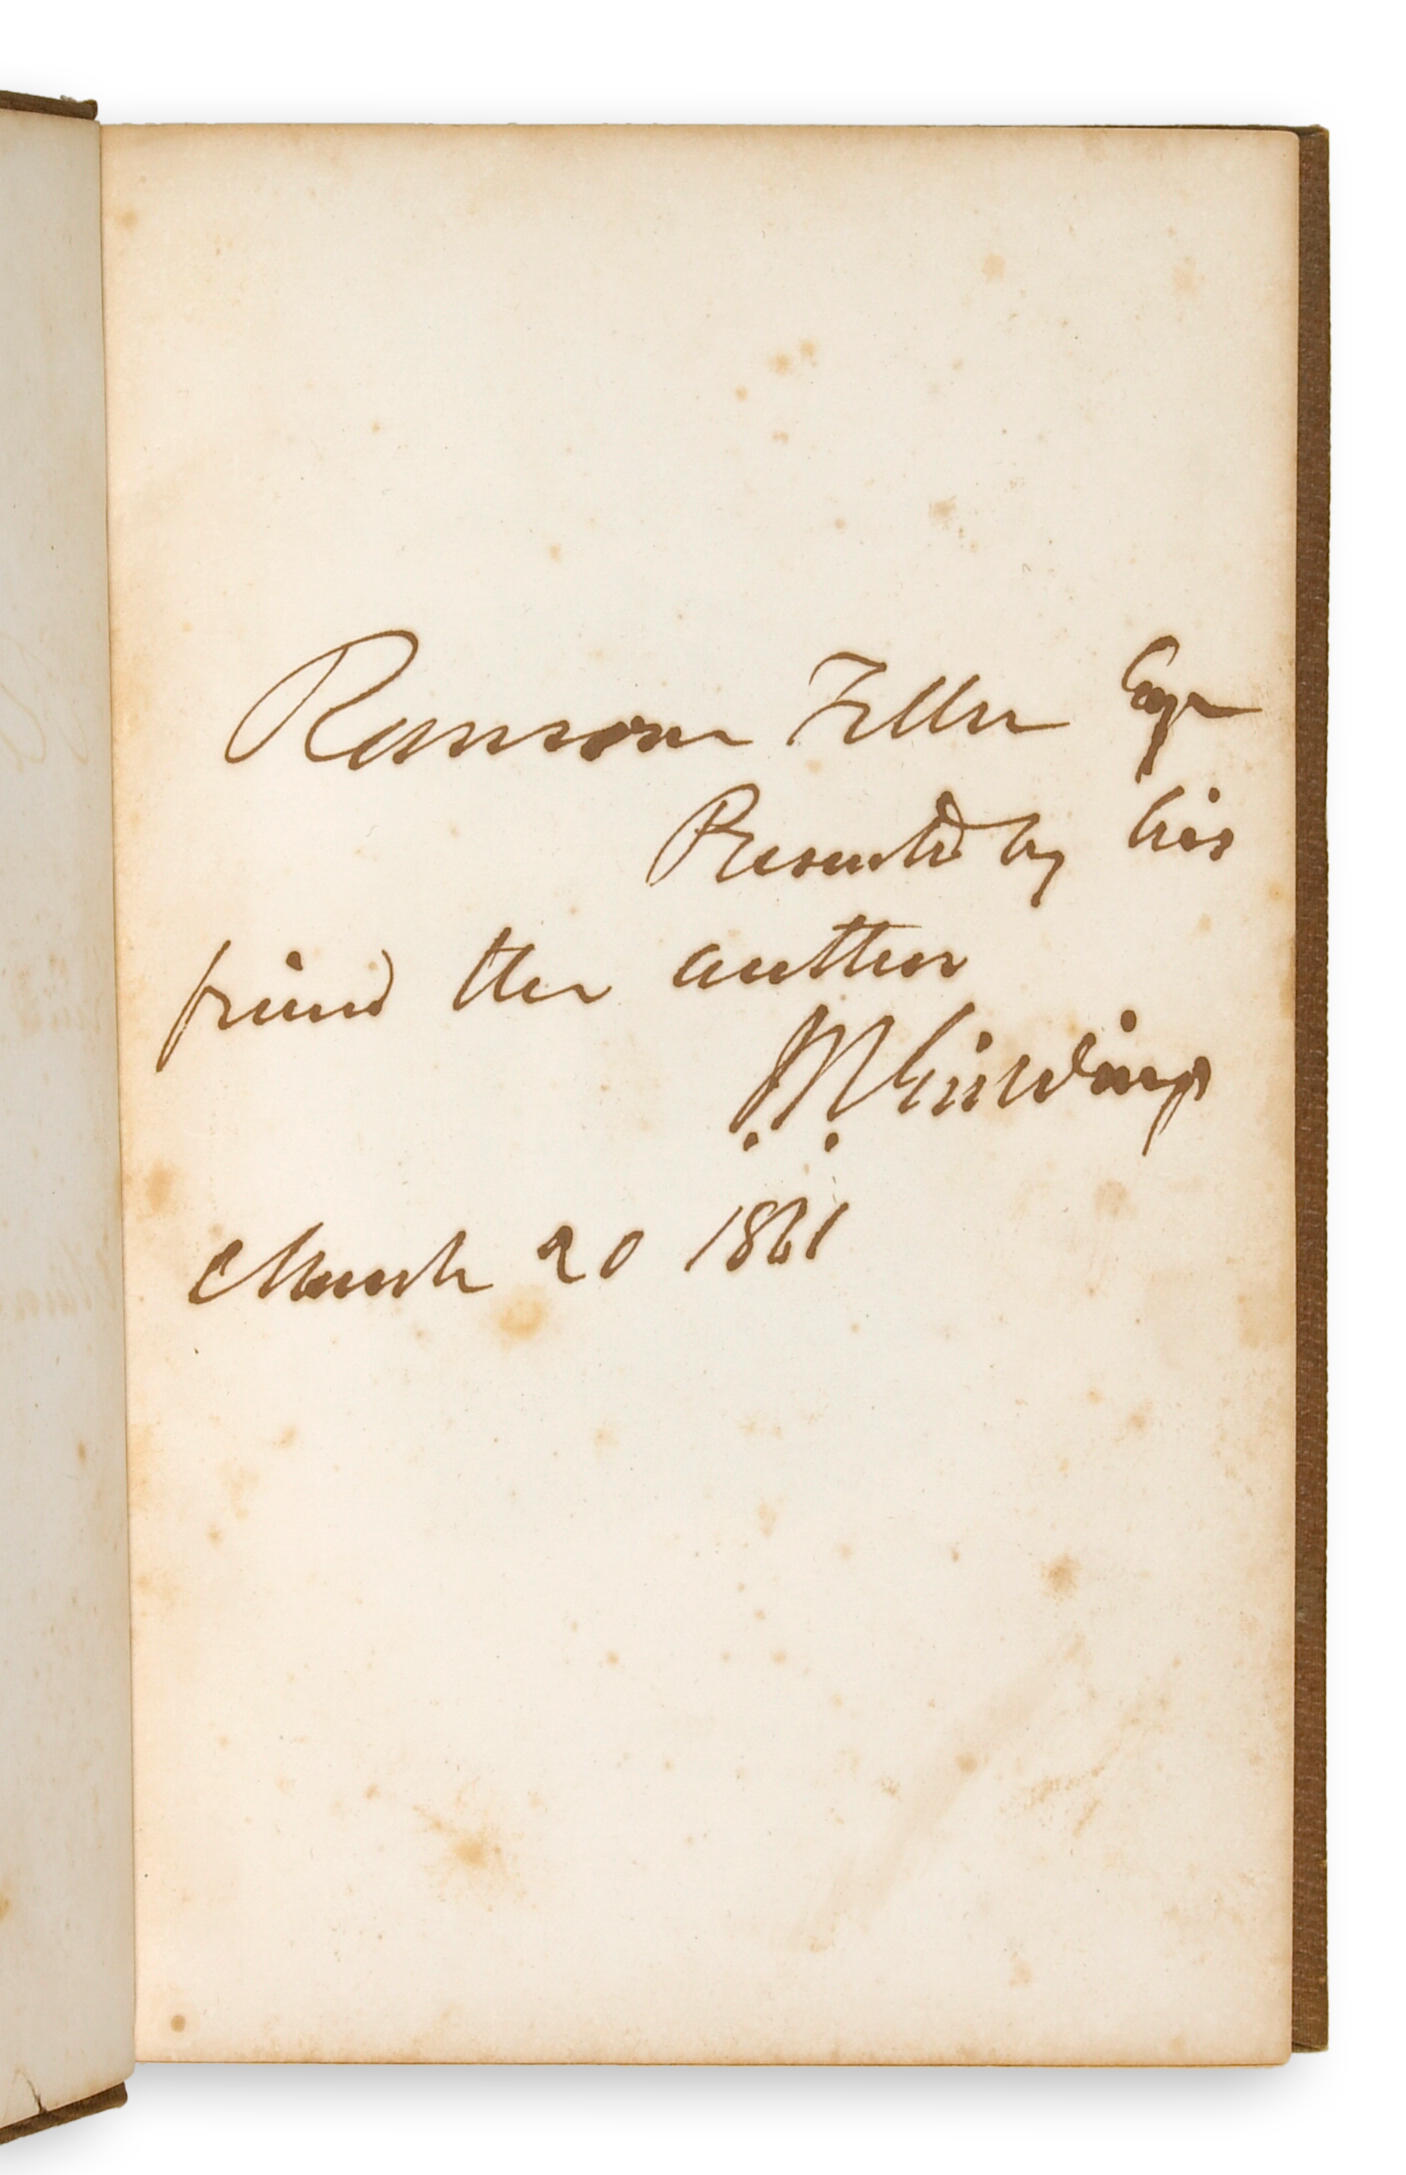 Ransom Esqr
Presented by his
friend the author
March 20 1861